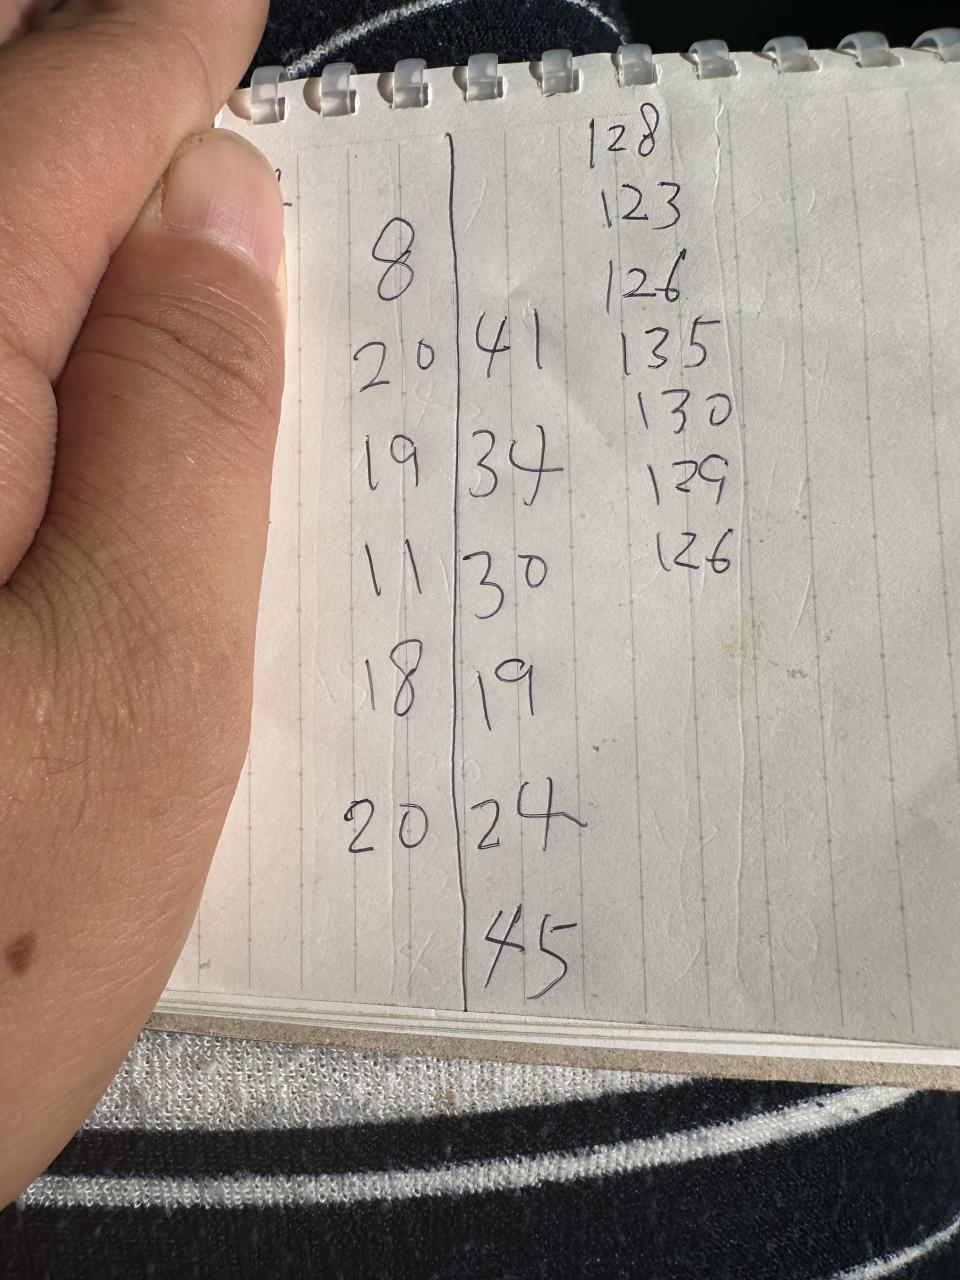 128
123
8
126
20 41
135
130
19 34
129
11 30
126
18 19
20 24
45